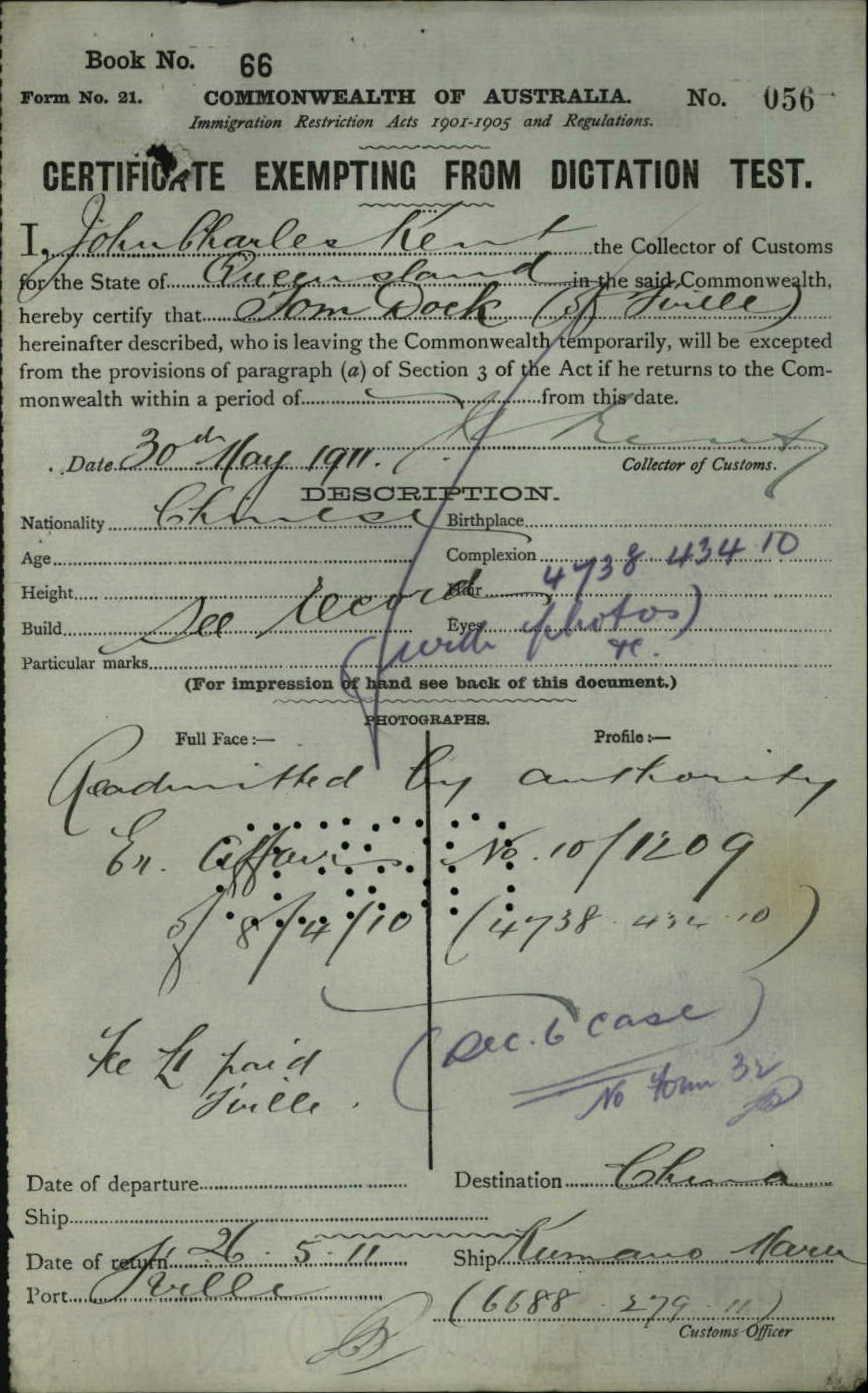 Book No. 66
Form No. 21. COMMONWEALTH OF AUSTRALIA. No. 056
Immigration Restriction Acts 1901-1905 and Regulations.
CERTIFICATE EXEMPTING FROM DICTATION TEST.
I, John Charles Kent the Collector of Customs
for the State of Queensland in the said Commonwealth,
hereby certify that Tom Dock (of T'ville)
hereinafter described, who is leaving the Commonwealth temporarily, will be excepted
from the provisions of paragraph (a) of Section 3 of the Act if he returns to the Com-
monwealth within a period of from this date.
Date 30th May 1911. Kent
Collector of Customs.
DESCRIPTION.
Nationality Chinese Birthplace
Age Complexion
4738 434 10
Height Hair
See record
Build Eyes
(with photos)
Particular marks
(For impression of hand see back of this document.)
PHOTOGRAPHS.
Full Face :— Profile :—
Readmitted by authority
Ex. Affairs No. 10/1209
of 8/4/10 (4738 · 434 · 10)
(Sec. 6 case)
Fee £1 paid No Form 32
T'ville.
Date of departure Destination China
Ship
Date of return 26 · 5 · 11 Ship Kumano Maru
Port T'ville (6688 · 279 · 11)
Customs Officer